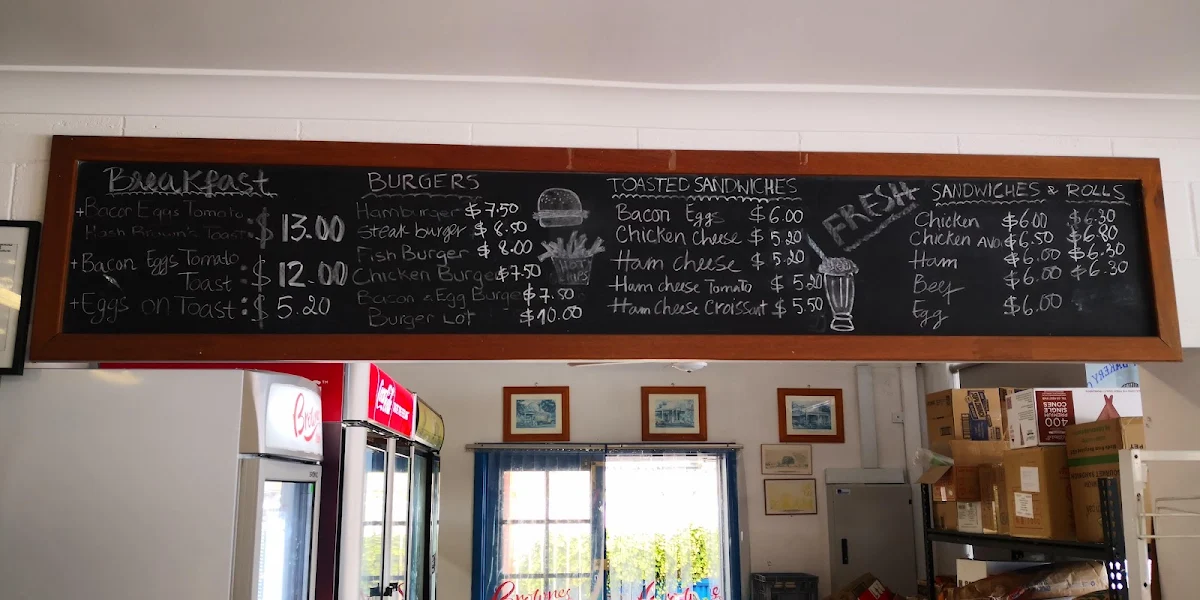 Breakfast
+Bacon Eggs Tomato
Hash Brown's Toast : $ 13.00
+Bacon Eggs Tomato
Toast : $ 12.00
+Eggs on Toast : $ 5.20
BURGERS
Hamburger $7.50
Steak burger $ 8.50
Fish Burger $ 8.00
Chicken Burger $7.50
Bacon & Egg Burger $7.50
Burger Lot $10.00
HOT
TOASTED SANDWICHES
Bacon Eggs $6.00
Chicken Cheese $ 5.20
Ham cheese $ 5.20
Ham cheese Tomato $ 5.20
Ham cheese Croissant $ 5.50
FRESH
SANDWICHES & ROLLS
Chicken $6.00 $6.30
Chicken Avo $6.50 $6.80
Ham $6.00 $6.30
Beef $6.00 $6.30
Egg $6.00
Coca-Cola
BAKERY
400
CONES
SINGLE